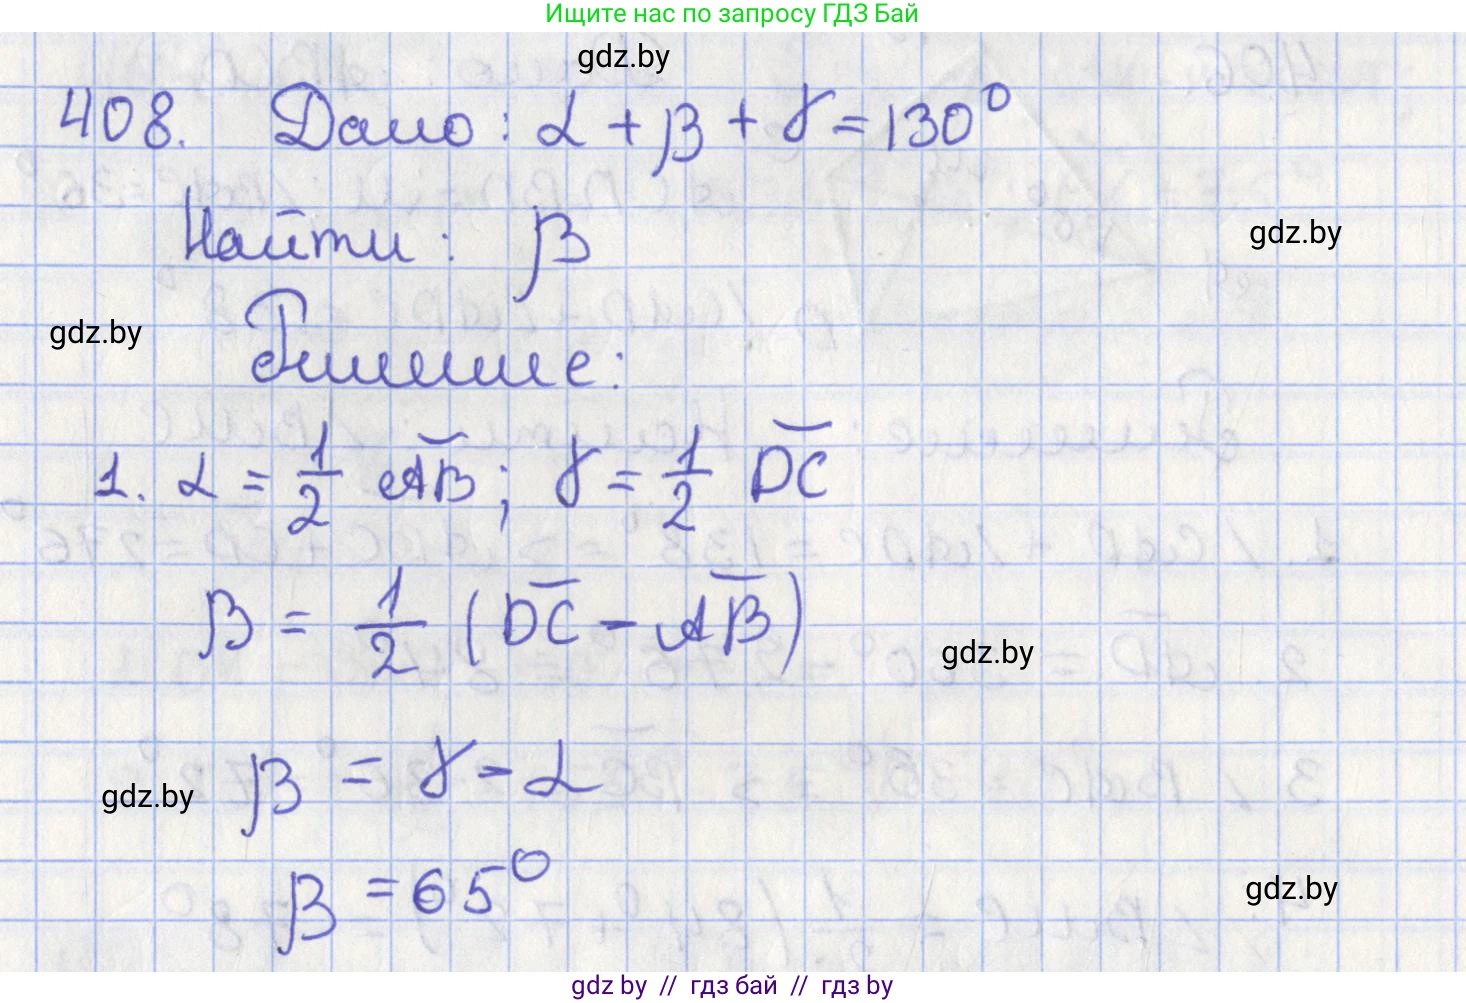 Ищите нас по запросу ГДЗ Бай
gdz.by
408. Дано: α + β + γ = 130⁰
gdz.by
Найти: β
gdz.by
Решение:
1. α = 1/2 ÂB; γ = 1/2 D̆C
β = 1/2 (D̆C - ĂB)
gdz.by
β = γ - α
gdz.by
β = 65⁰
gdz.by
gdz by // гдз бай // гдз by